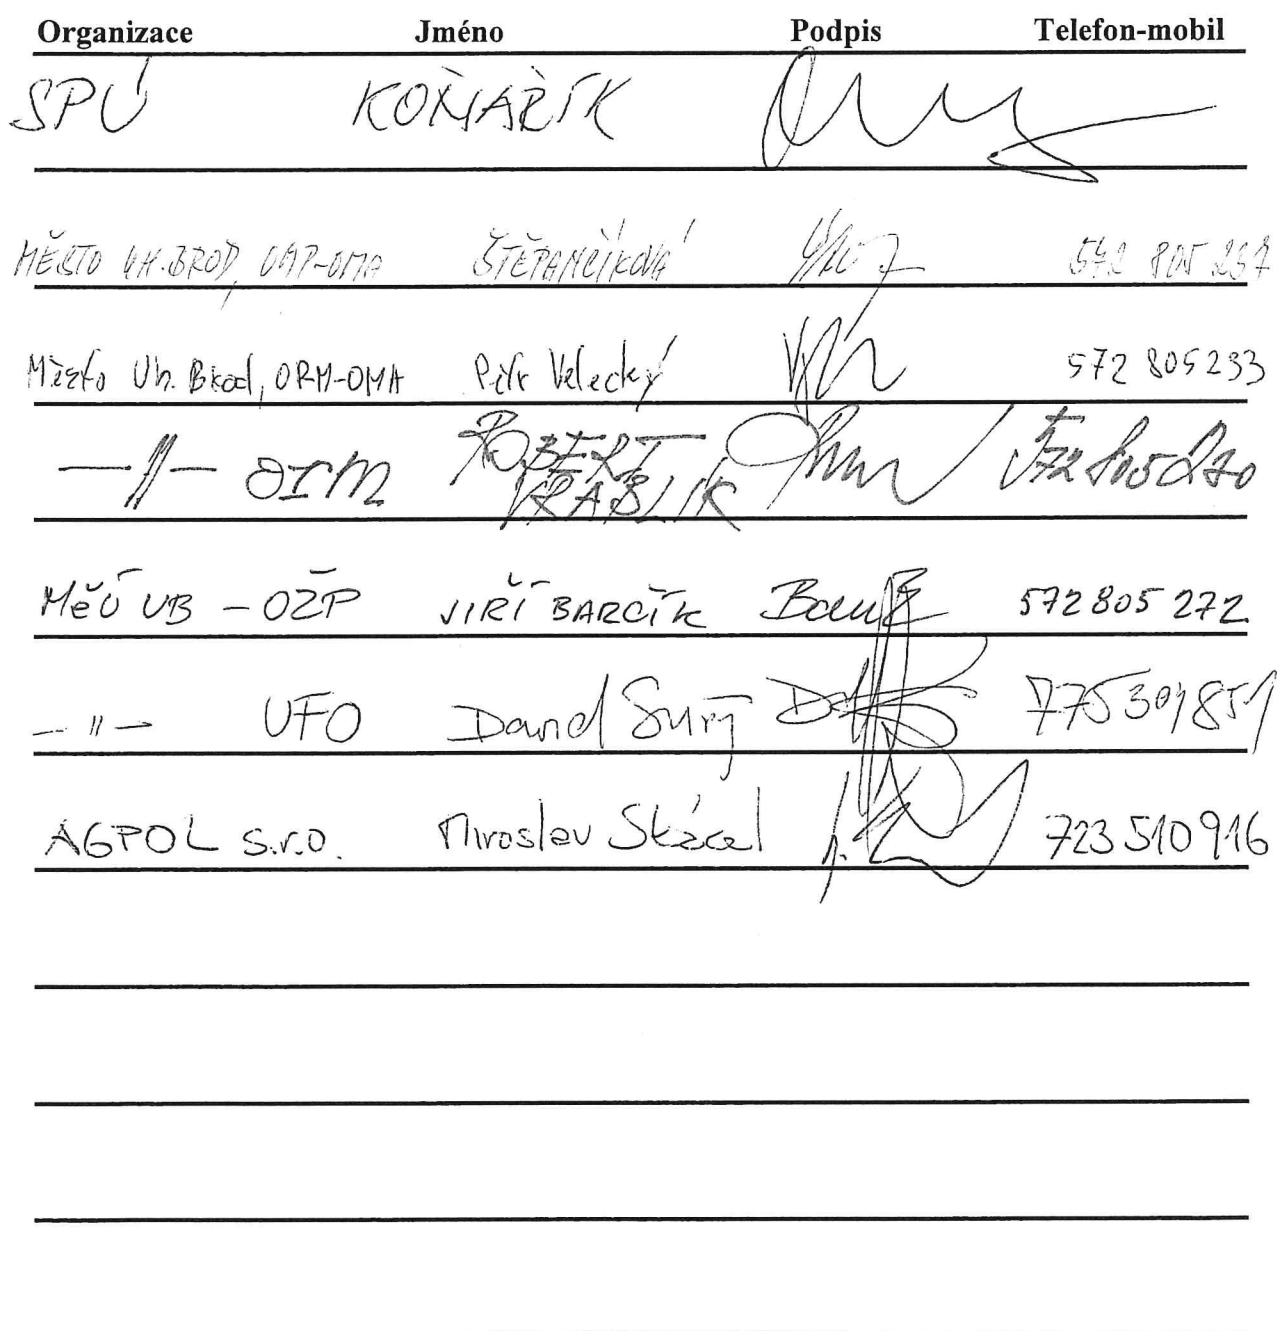 Organizace Jméno Podpis Telefon-mobil
SPÚ
MĚSTO UH.BROD, ŠTĚPANČÍKOVÁ 572 805 237
Město Uh. Brod, ORM-OMA Petr Velecký 572 805233
—〃— ORM ROBERT VRABLÍK
MěÚ UB – OŽP JIŘÍ BARČÍK 572805 272
—〃— UFO David Surý
AGPOL s.r.o. Miroslav Skácel 723 510 916